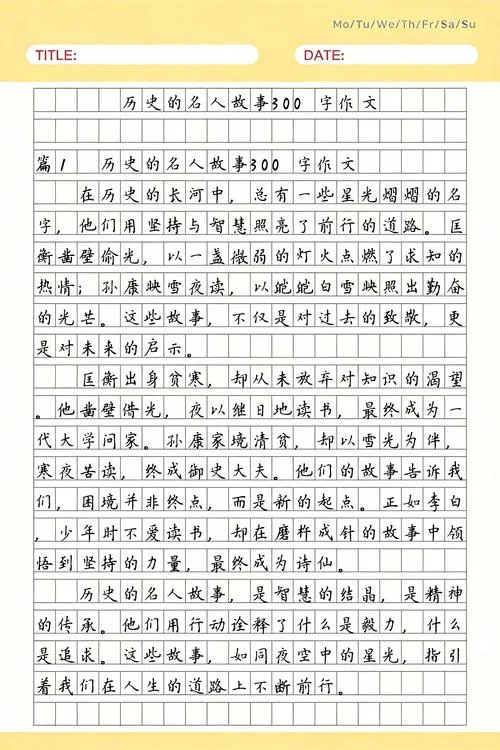 Mo/Tu/We/Th/Fr/Sa/Su
TITLE:
DATE:
历史的名人故事300 字作文
篇1 历史的名人故事300 字作文
在历史的长河中，总有一些星光熠熠的名
字，他们用坚持与智慧照亮了前行的道路。匡
衡凿壁偷光，以一盏微弱的灯火点燃了求知的
热情；孙康映雪夜读，以皑皑白雪映照出勤奋
的光芒。这些故事，不仅是对过去的致敬，更
是对未来的启示。
匡衡出身贫寒，却从未放弃对知识的渴望
。他凿壁借光，夜以继日地读书，最终成为一
代大学问家。孙康家境清贫，却以雪光为伴，
寒夜苦读，终成御史大夫。他们的故事告诉我
们，困境并非终点，而是新的起点。正如李白
，少年时不爱读书，却在磨杵成针的故事中领
悟到坚持的力量，最终成为诗仙。
历史的名人故事，是智慧的结晶，是精神
的传承。他们用行动诠释了什么是毅力，什么
是追求。这些故事，如同夜空中的星光，指引
着我们在人生的道路上不断前行。